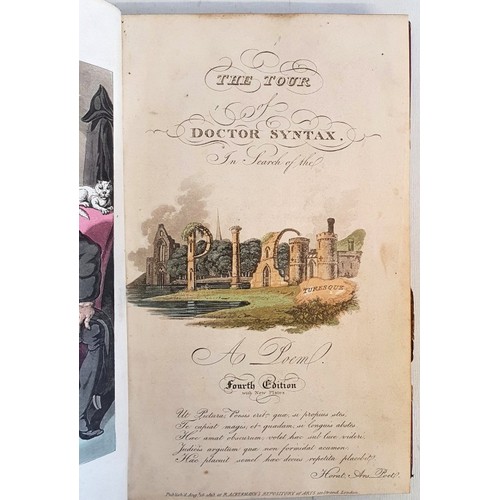 THE TOUR
of
DOCTOR SYNTAX.
In Search of the
PIC
TURESQUE
A Poem.
Fourth Edition
with New Plates
Ut Pictura, Poesis erit quæ, si propius stes,
Te capiat magis, et quædam, si longius abstes
Hæc amat obscurum, volet hæc sub luce videri,
Judicis argutum quæ non formidat acumen
Hæc placuit semel hæc decies repetita placebit.
Horat. Ars. Poet.
Published Aug. 1813 at R. ACKERMANN'S REPOSITORY of ARTS 101 Strand, London.